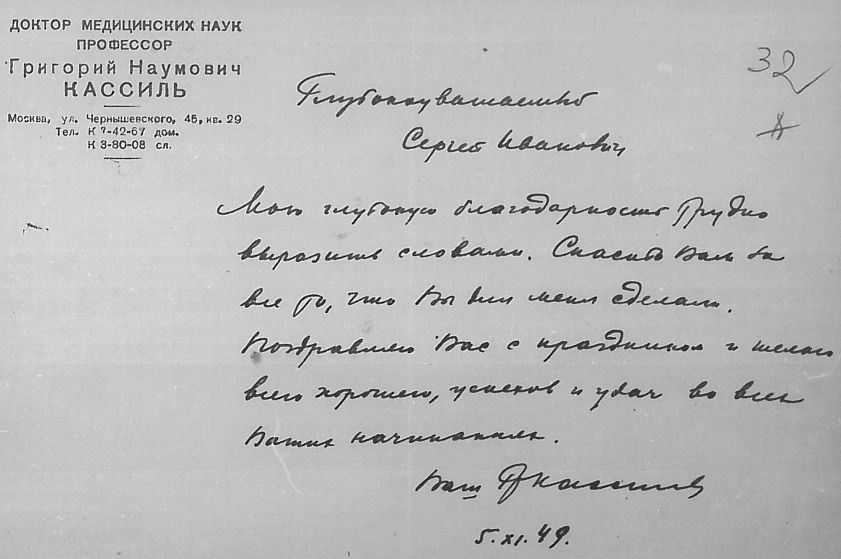 ДОКТОР МЕДИЦИНСКИХ НАУК
ПРОФЕССОР
Григорий Наумович
КАССИЛЬ
Москва, ул. Чернышевского, 45, кв. 29
Тел. К 7-42-67 дом.
К 3-80-08 сл.
32
Глубокоуважаемый
Сергей Иванович
Мою глубокую благодарность трудно
выразить словами. Спасибо Вам за
все то, что Вы для меня сделали.
Поздравляю Вас с праздником и желаю
всего хорошего, успехов и удач во всех
Ваших начинаниях.
Ваш Г Кассиль
5.XI.49.